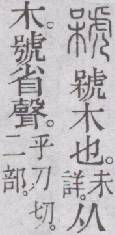 木也。未詳。从
木。號省聲。乎刀切。二部。